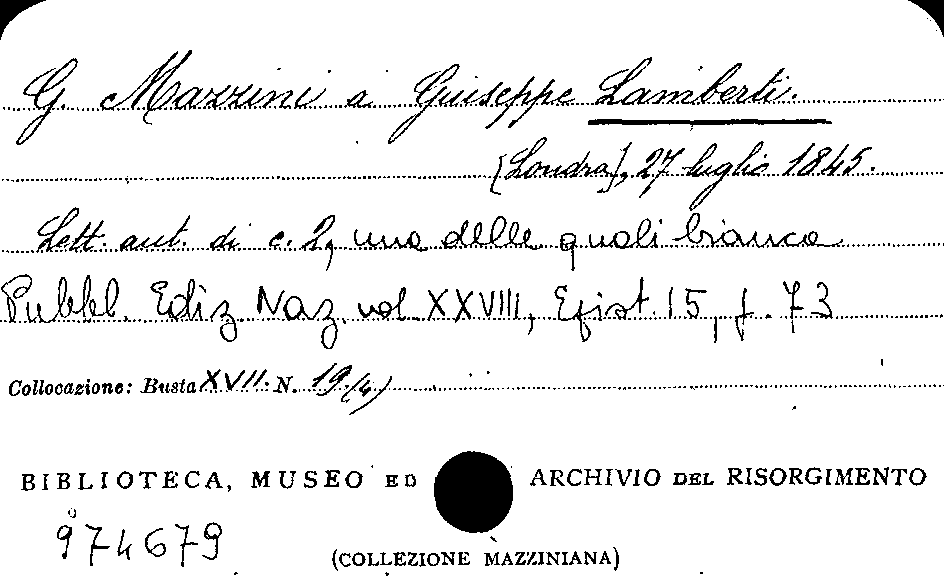 G. Mazzini a Giuseppe Lamberti.
[Londra], 27 luglio 1845.
Lett. aut. di c. 2, una delle quali bianca
Pubbl. Ediz. Naz. vol. XXVIII, Epist. 15, p. 73
Collocazione: Busta XVII. N. 19 (4)
BIBLIOTECA, MUSEO ED ARCHIVIO DEL RISORGIMENTO
974679
(COLLEZIONE MAZZINIANA)